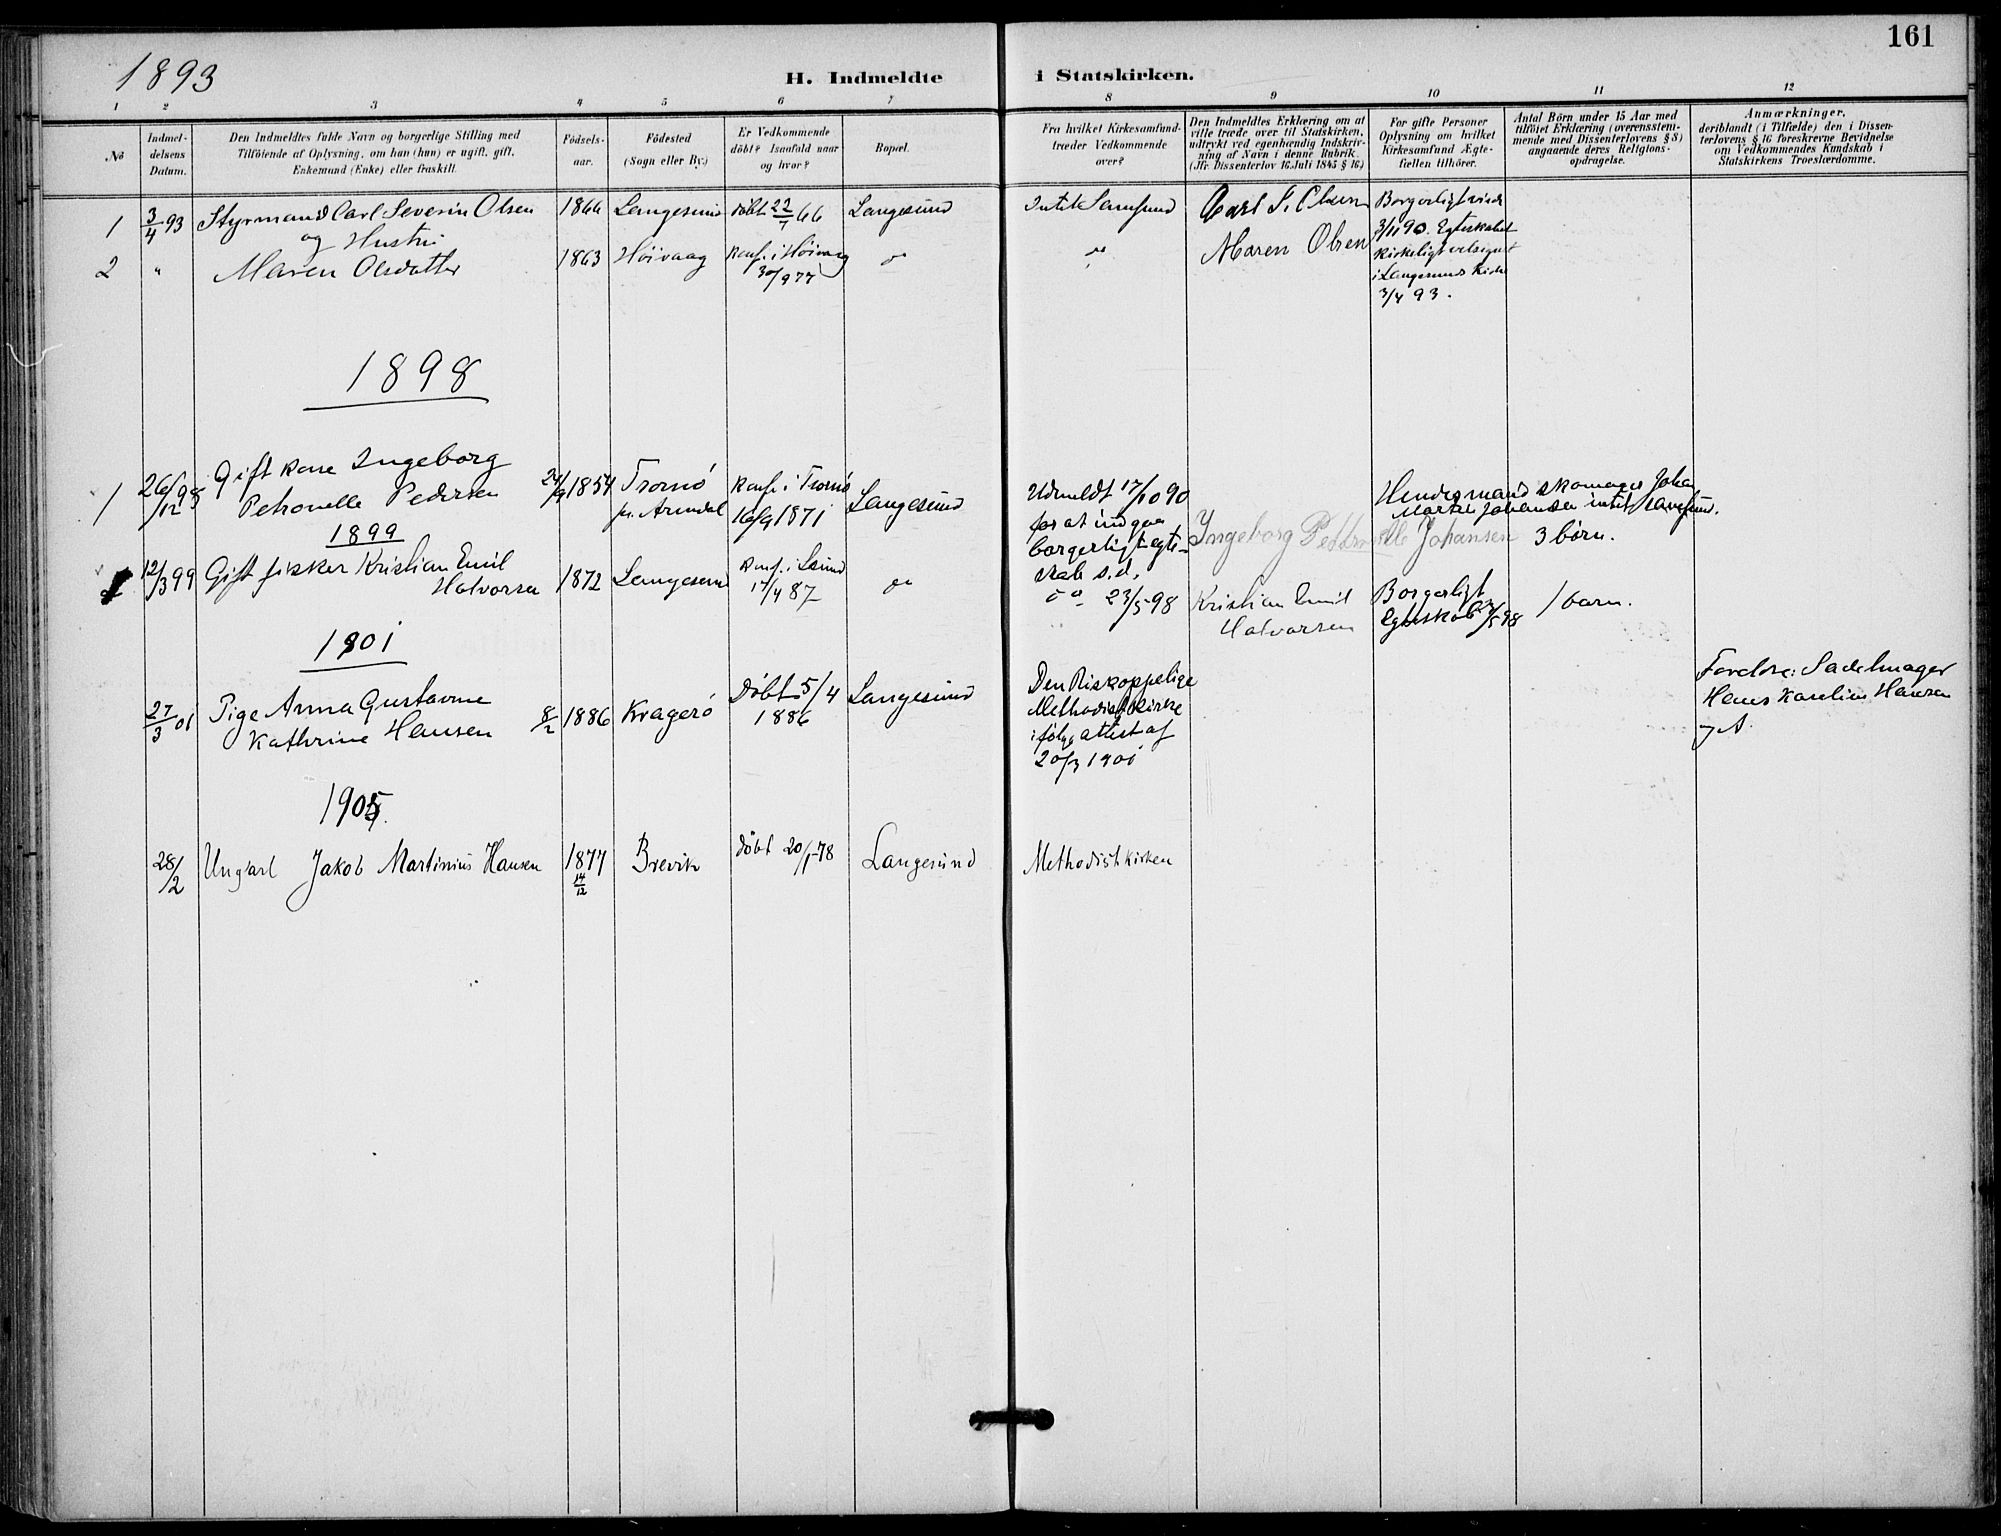 161
1893
H. Indmeldte i Statskirken.
1 2 3 4 5 6 7 8 9 10 11 12
No
Indmel-
delsens
Datum.
Den Indmeldtes fulde Navn og borgerlige Stilling med
Tilföiende af Oplysning, om han (hun) er ugift, gift,
Enkemand (Enke) eller fraskilt.
Födsels-
aar.
Födested
(Sogn eller By.)
Er Vedkommende
döbt? Isaafald naar
og hvor?
Bopæl.
Fra hvilket Kirkesamfund
træder Vedkommende
over?
Den Indmeldtes Erklæring om at
ville træde over til Statskirken,
udtrykt ved egenhændig Indskriv-
ning af Navn i denne Rubrik
(Jfr. Dissenterlov 16 Juli 1845 § 16)
For gifte Personer
Oplysning om hvilket
Kirkesamfund Ægte-
fællen tilhörer.
Antal Börn under 15 Aar med
tilföiet Erklæring (overensstem-
mende med Dissenterlovens § 8)
angaaende deres Religions-
opdragelse.
Anmærkninger,
deriblandt (i Tilfælde) den i Dissen-
terlovens § 16 foreskrevne Bevidnelse
om Vedkommendes Kundskab i
Statskirkens Troeslærdomme.
1 3/4 93 Styrmand Carl Severin Olsen 1866 Langesund döbt 22/7 66 Langesund Intet Samfund Carl S. Olsen Borgerligt viede
og Hustru 3/11 90. Egteskabet
2 " Maren Olsdatter 1863 Höivaag Konf. i Höivaag do do Maren Olsen kirkeligt velsignet
30/9 77 i Langesunds Kirke
3/4 93.
1898
1 26/12 98 Gift kone Ingeborg 24/9 1854 Tromö Konf. i Tromö Langesund Udmeldt 17/10 90 Hendes mand skomager Johan
Petronelle Pedersen pr. Arendal 16/9 1871 for at indgaa Martin Johansen intet samfund.
borgerligt egte- Ingeborg Petronelle Johansen 3 børn.
skab s.d.
1899
12/3 99 Gift fisker Kristian Emil 1872 Langesund Konf. i Lsund do do 23/5 98 Kristian Emil Borgerligt 1 barn.
Halvorsen 17/4 87 Halvorsen Egteskab 23/5 98
1901
27/3 01 Pige Anna Gustavine 8/2 1886 Kragerö Döbt 5/4 Langesund Den Biskoppelige Foreldre: Sadelmager
Kathrine Hansen 1886 Methodistkirke Hans Karelius Hansen
ifølge attest af
20/3 1901
1905
28/2 Ungkarl Jakob Martinius Hansen 1877 Brevik döbt 20/1 78 Langesund Methodistkirken
14/12